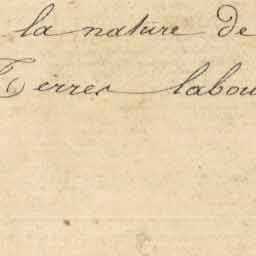 la nature de
Terres labou